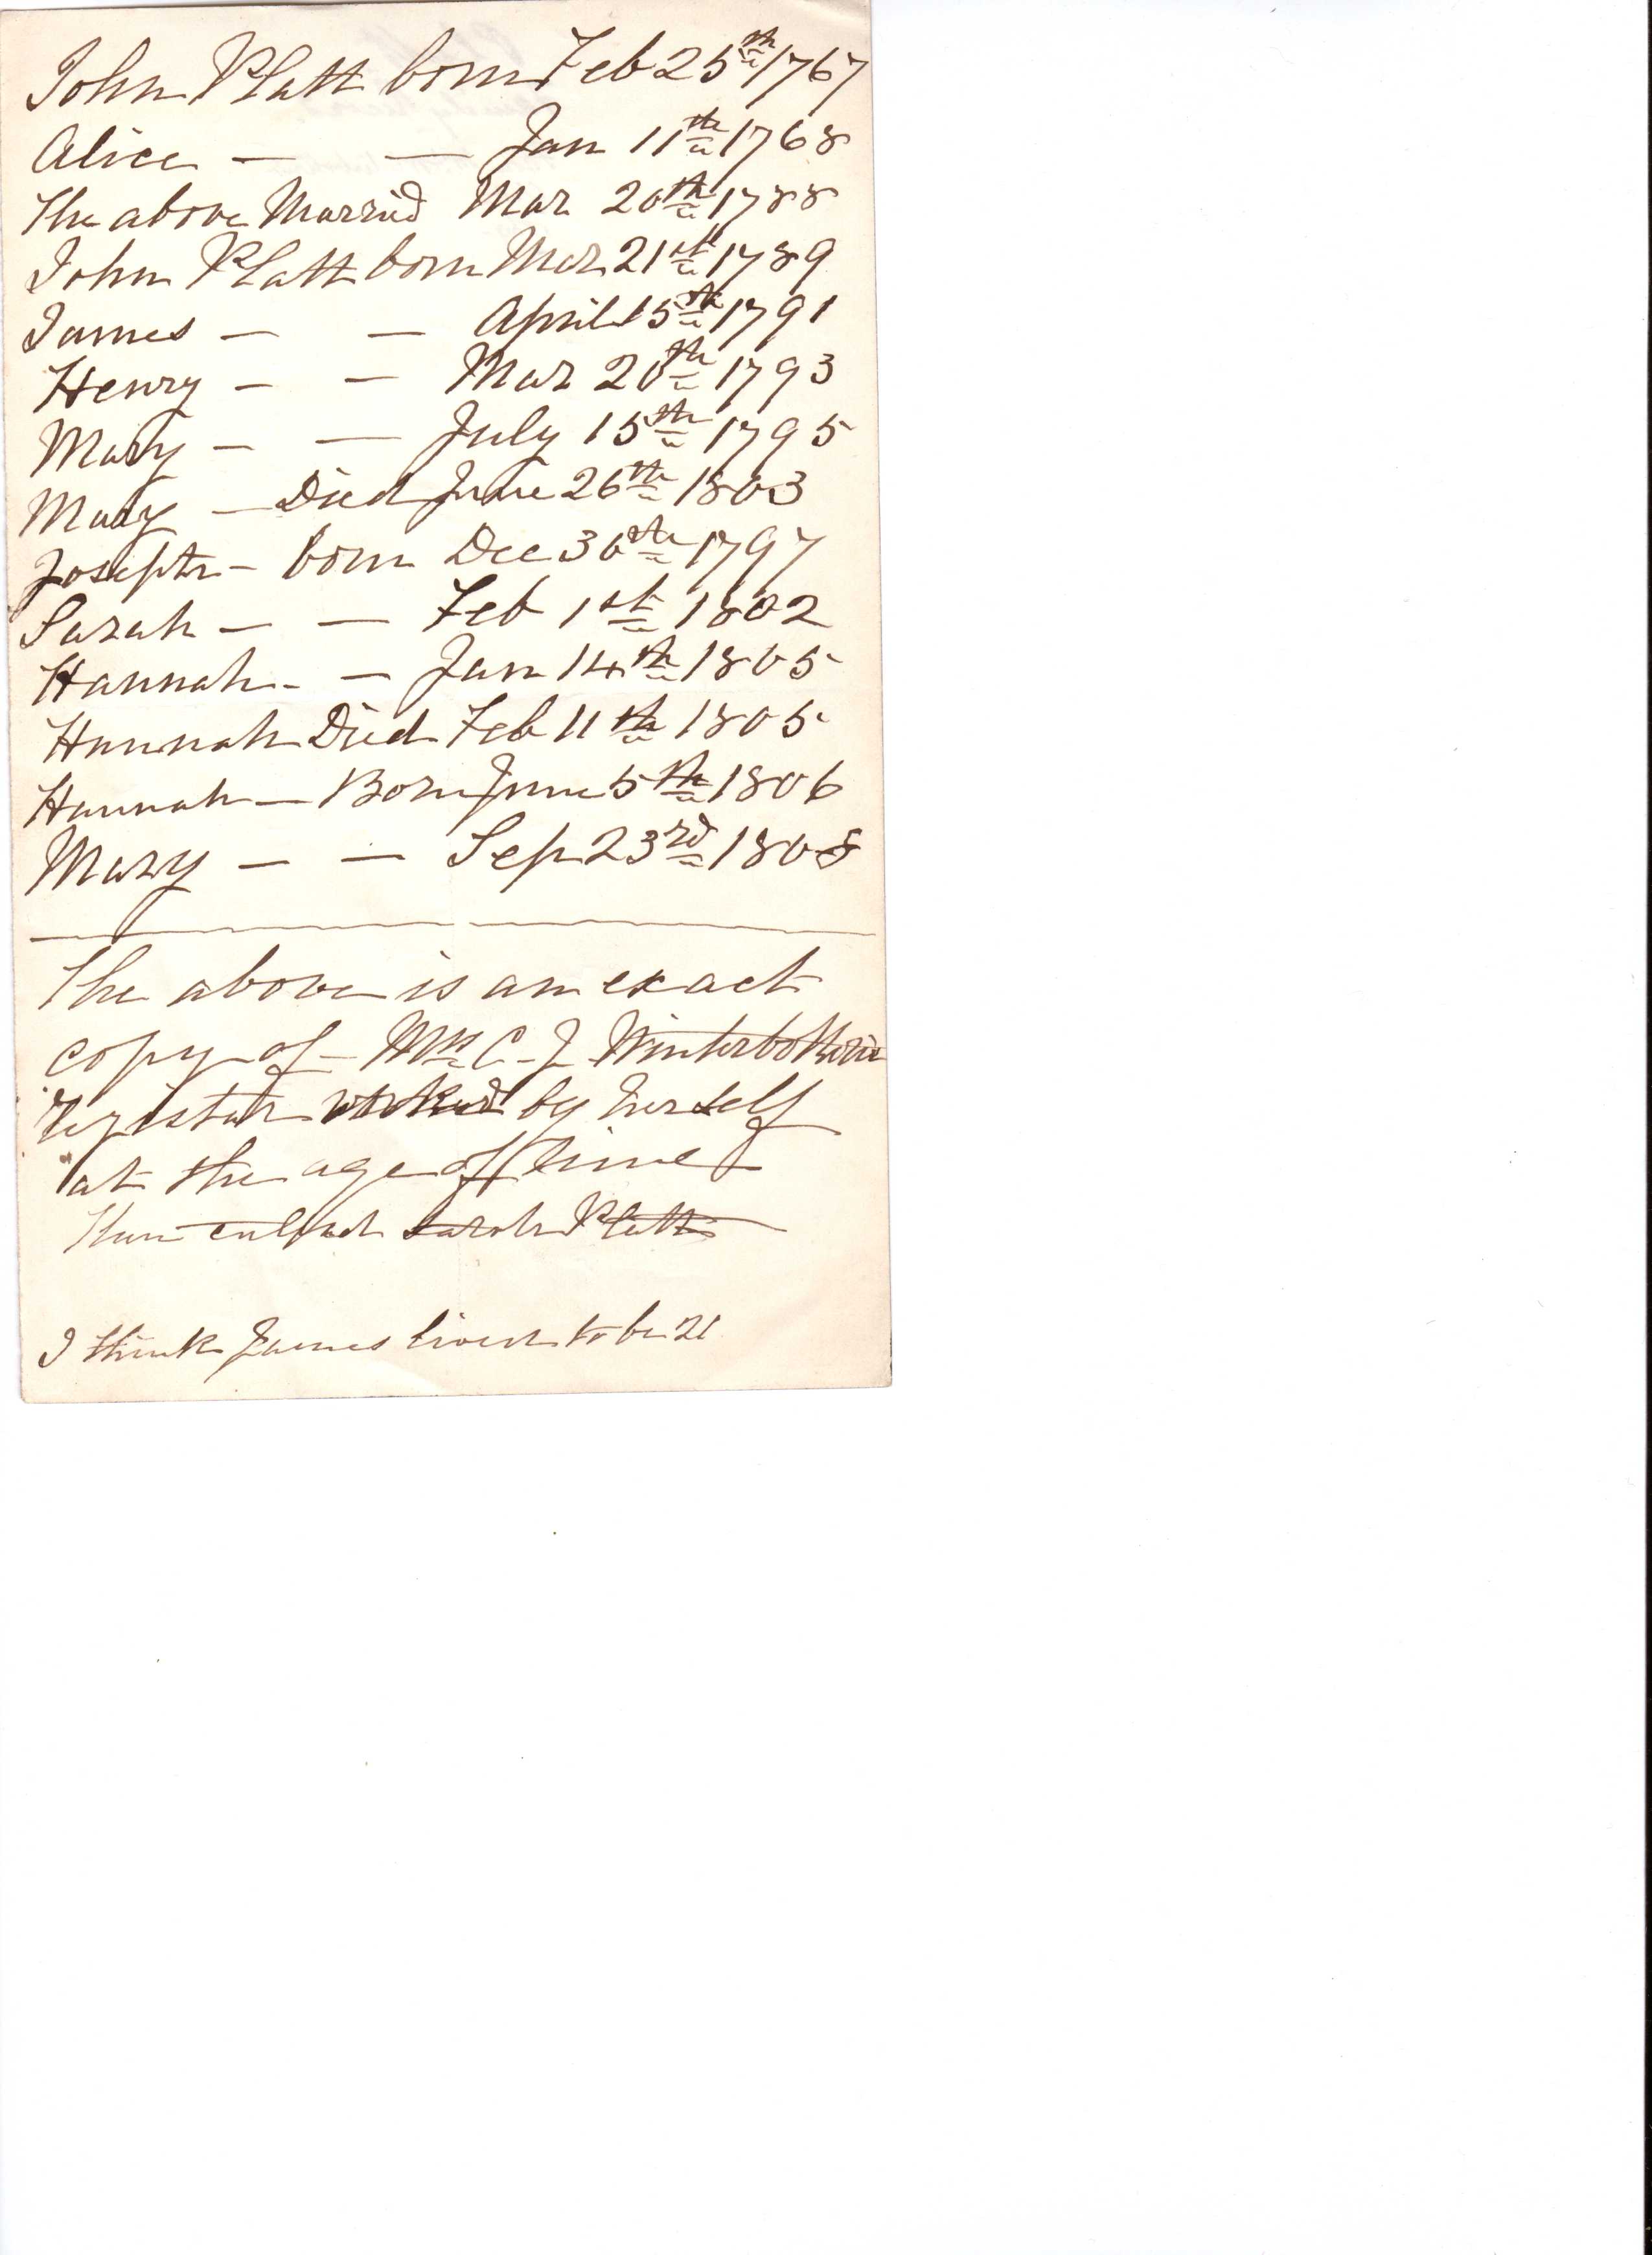 John Platt born Feb 25th 1767
Alice — — Jan 11th 1768
The above Married Mar 20th 1788
John Platt born Mar 21st 1789
James — — April 15th 1791
Henry — — Mar 20th 1793
Mary — — July 15th 1795
Mary — Died June 26th 1803
Joseph — born Dec 30th 1797
Sarah — — Feb 1st 1802
Hannah — — Jan 14th 1805
Hannah Died Feb 11th 1805
Hannah — Born June 5th 1806
Mary — — Sep 23rd 1808
The above is an exact
copy of — Mrs C. J. Winterbottom
register worked by herself
at the age of nine
then called Sarah Platt
I think James lived to be 21